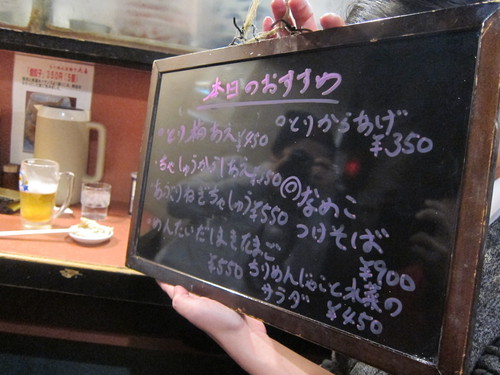 本日のおすすめ
とり梅あえ ¥450
ちゃしゅうからしあえ ¥350
あぶりねぎちゃしゅう ¥550
めんたいだしまきたまご
¥550
とりからあげ
¥350
なめこ
つけそば
¥900
ちりめんじゃこと水菜の
サラダ ¥450